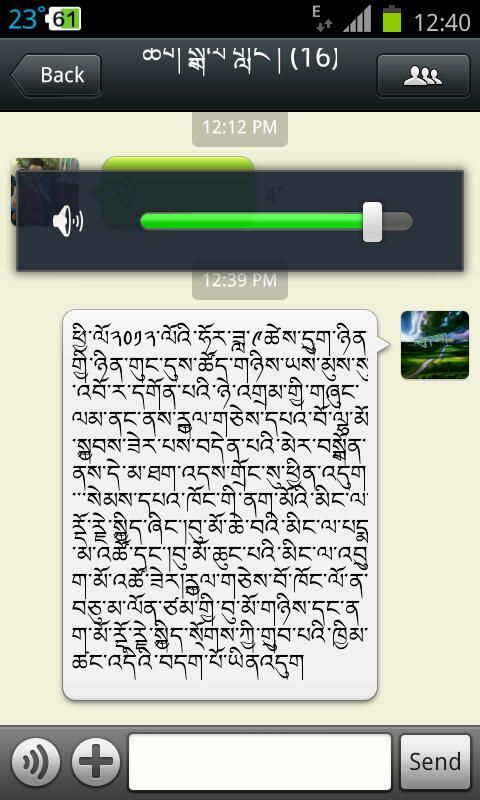 23° 61
12:40
Back
ཆབ། སྒྲོལ་གླིང་། (16)
12:12 PM
4"
12:39 PM
ཕྱི་ལོ༢༠༡༢་ལོའི་ཧོར་ཟླ་༩ཚེས་དྲུག་ཉིན་
གྱི་ཉིན་གུང་དུས་ཚོད་གཉིས་ཡས་མུས་སུ་
འབོ་ར་དགོན་པའི་ཉེ་འགྲམ་གྱི་གཞུང་
ལམ་ནང་ནས་རྒྱལ་གཅེས་དཔའ་བོ་ལྷ་མོ་
སྐྱབས་ཟེར་པས་བདེན་པའི་མེར་བསྒྲོན་
ནས་དེ་མ་ཐག་འདས་གྲོང་སུ་ཕྱིན་འདུག
་་་སེམས་དཔའ་ཁོང་གི་ནག་མོའི་མིང་ལ་
རྡོ་རྗེ་སྐྱིད་ཞིང་།བུ་མོ་ཆེ་བའི་མིང་ལ་པདྨ་
མེ་འཚོ་དང་།བུ་མོ་ཆུང་པའི་མིང་ལ་འབྲུ
ག་མོ་འཚོ་ཟེར།རྒྱལ་གཅེས་བོ་ཁོང་ལོ་ན་
བཅུ་མ་ལོན་ཙམ་གྱི་བུ་མོ་གཉིས་དང་ན
ག་མོ་རྡོ་རྗེ་སྐྱིད་སོགས་ཀྱི་གྲུབ་པའི་ཁྱིམ་
ཚང་འདིའི་བདག་པོ་ཡིནའདུག
Send